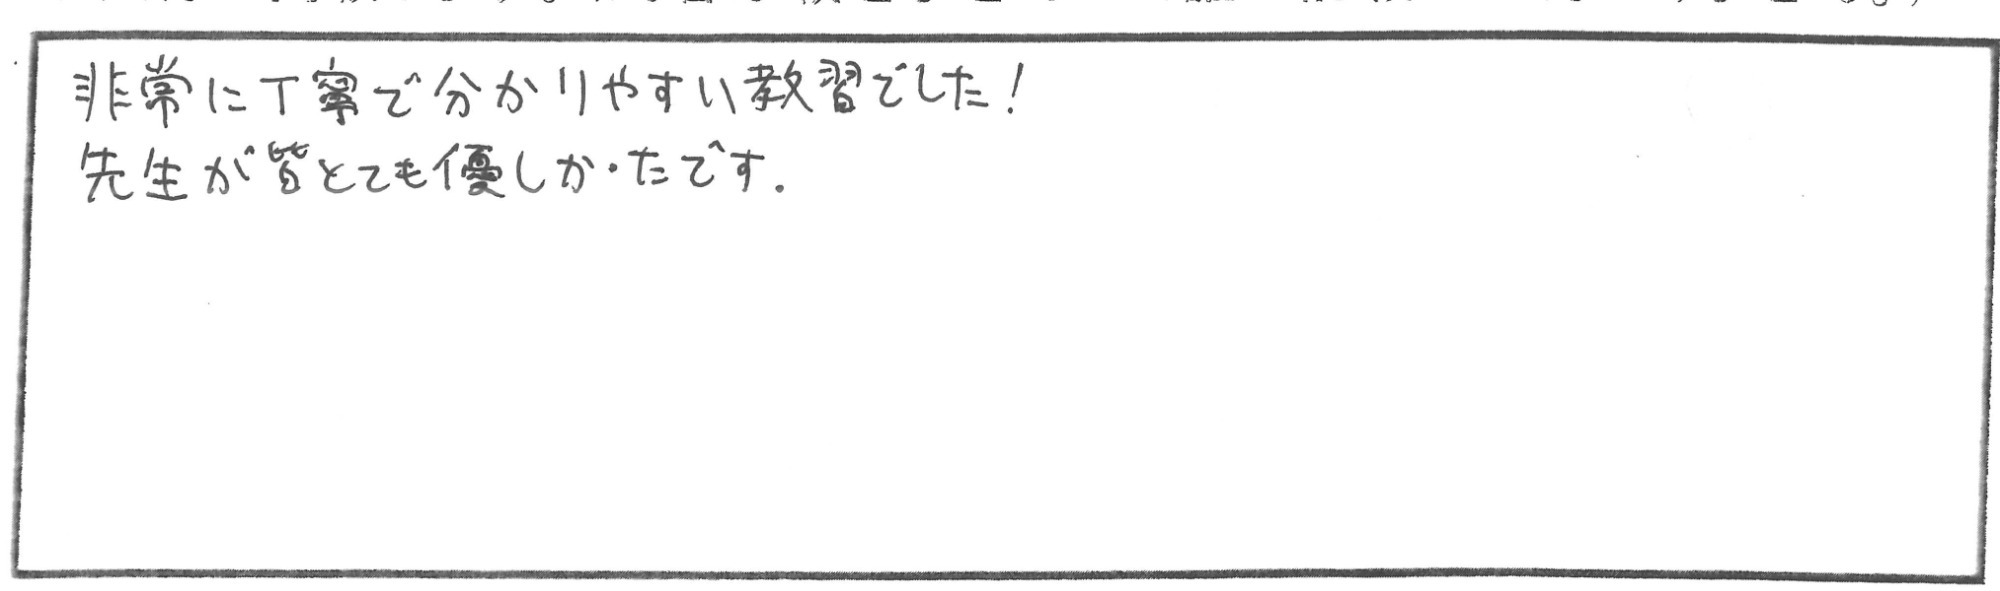 非常に丁寧で分かりやすい教習でした!
先生が皆とても優しかったです.